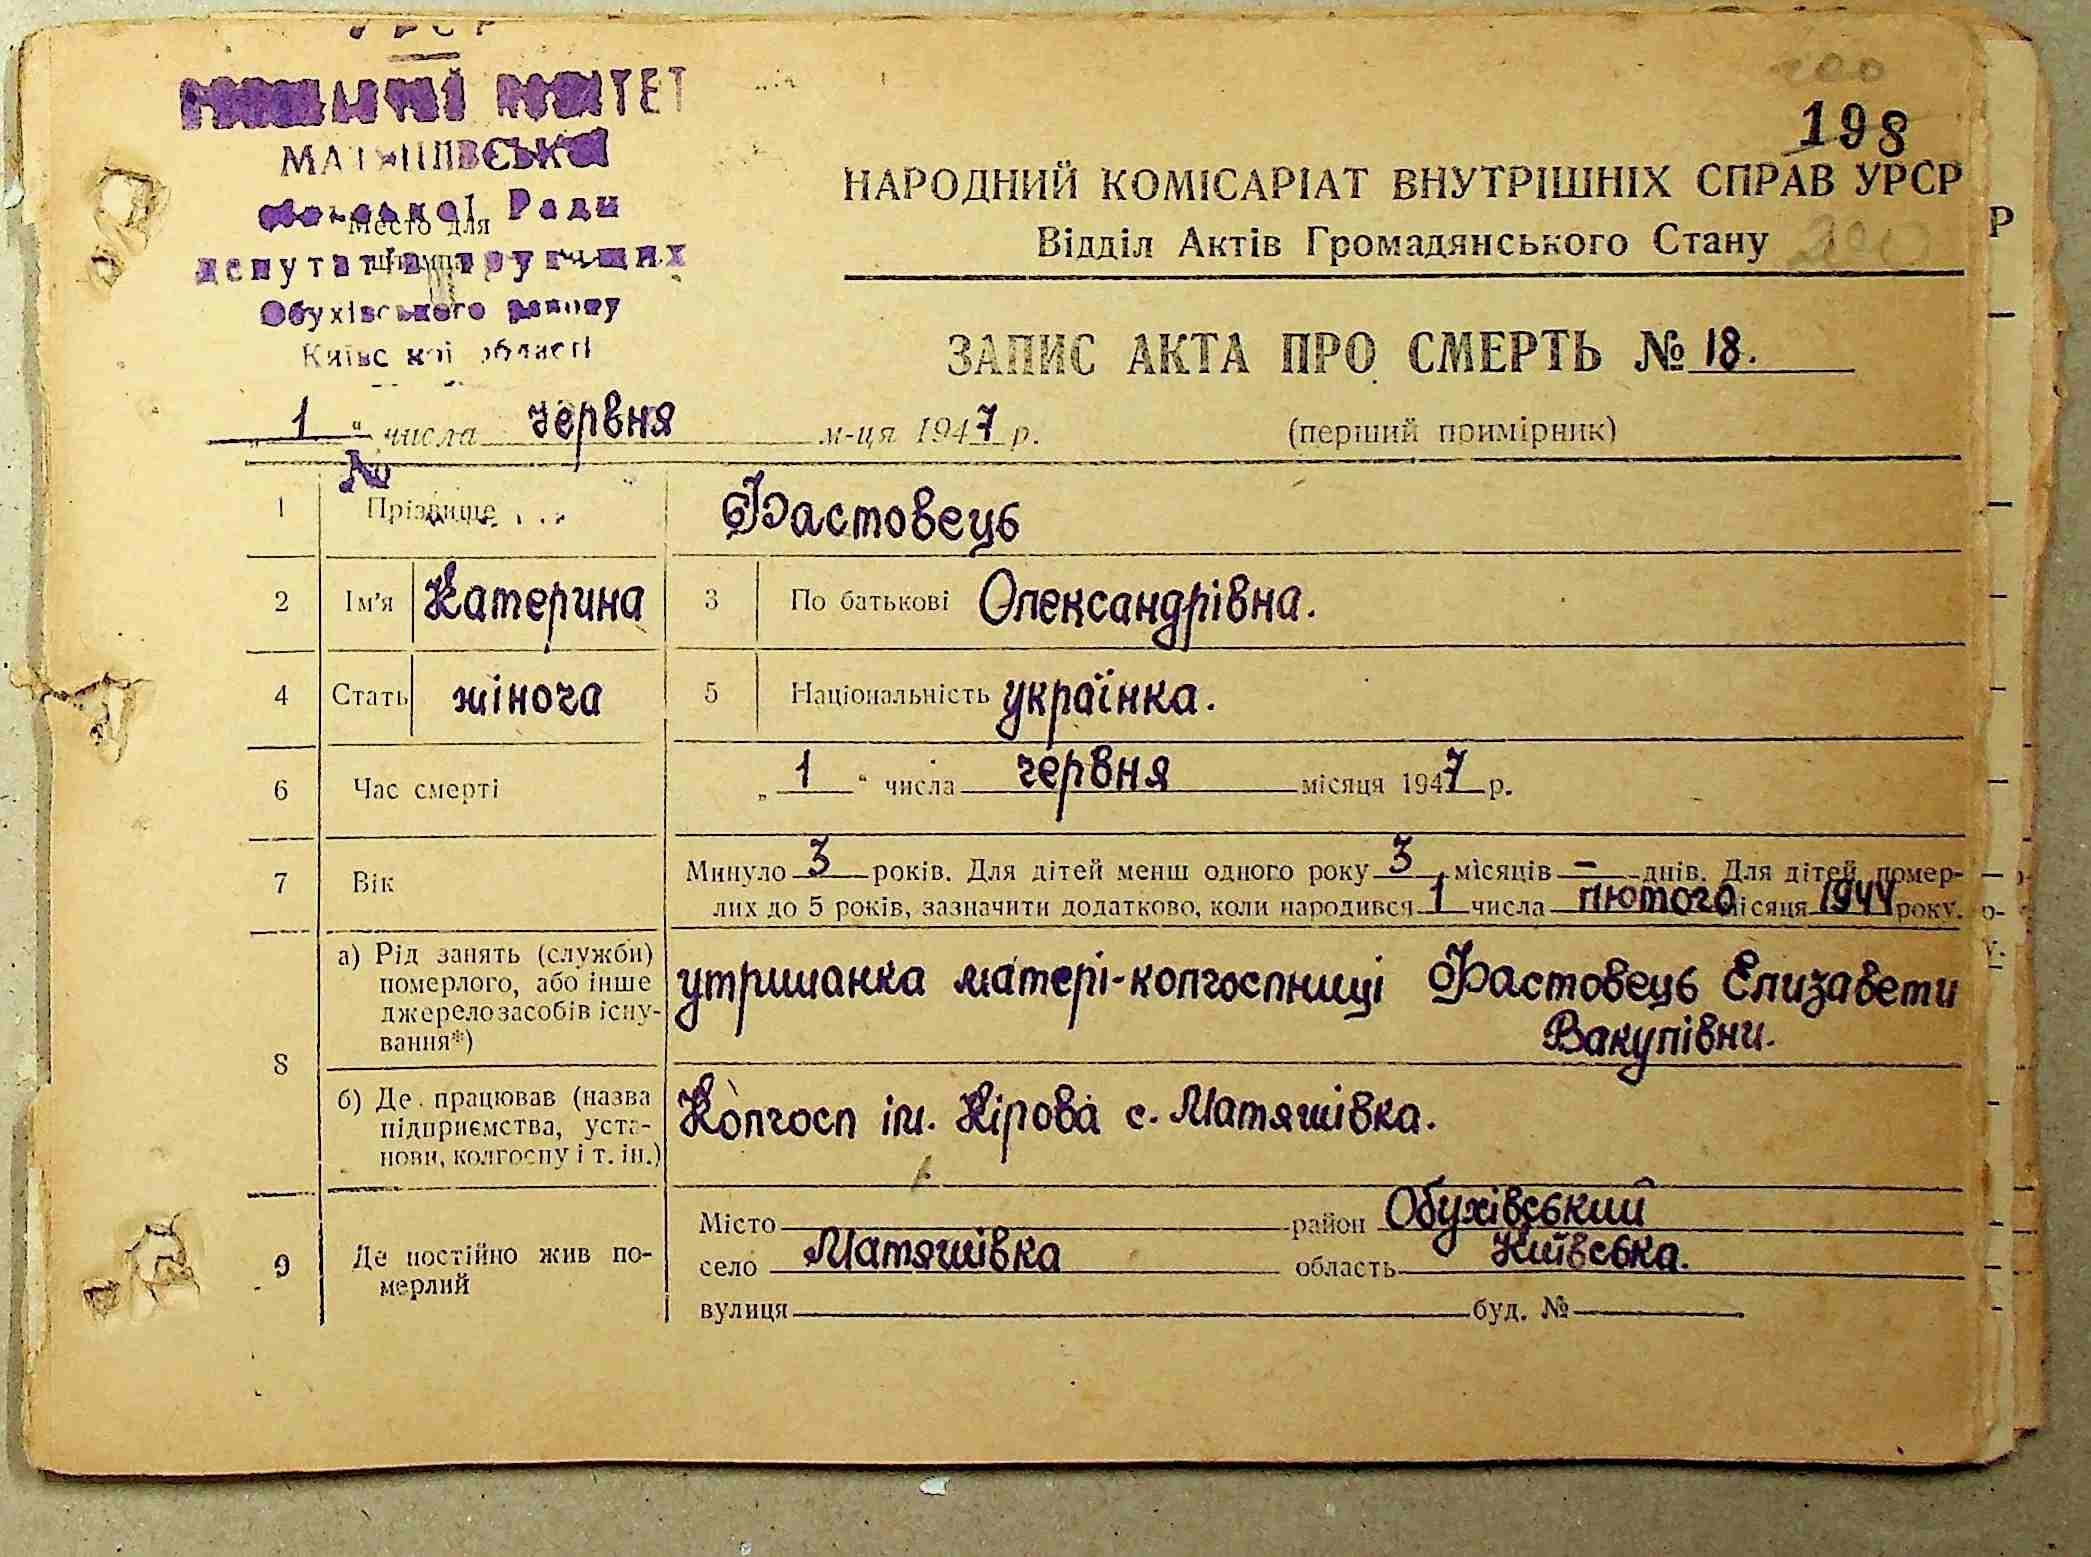 УРСР
КОМІТЕТ
МАТЯШІВСЬКОЇ
сільської Ради
Место для
депутатів трудящих
штампа
Обухівського району
Київської області
198
НАРОДНИЙ КОМІСАРІАТ ВНУТРІШНІХ СПРАВ УРСР
Відділ Актів Громадянського Стану 200
ЗАПИС АКТА ПРО СМЕРТЬ № 18.
„ 1 “ числа червня м-ця 1947 р. (перший примірник)
№
1 Прізвище Фастовець
2 Ім'я Катерина 3 По батькові Олександрівна.
4 Стать жіноча 5 Національність українка.
6 Час смерті „ 1 “ числа червня місяця 1947 р.
7 Вік Минуло 3 років. Для дітей менш одного року 3 місяців – днів. Для дітей помер-
лих до 5 років, зазначити додатково, коли народився 1 числа лютого місяця 1944 року.
8 а) Рід занять (служби)
померлого, або інше
джерело засобів існу-
вання*)
утриманка матері-колгоспниці Фастовець Елизавети
Вакулівни.
б) Де працював (назва
підприємства, уста-
нови, колгоспу і т. ін.)
Колгосп ім. Кірова с. Матяшівка.
9 Де постійно жив по-
мерлий
Місто район Обухівський
село Матяшівка область Київська.
вулиця буд. №